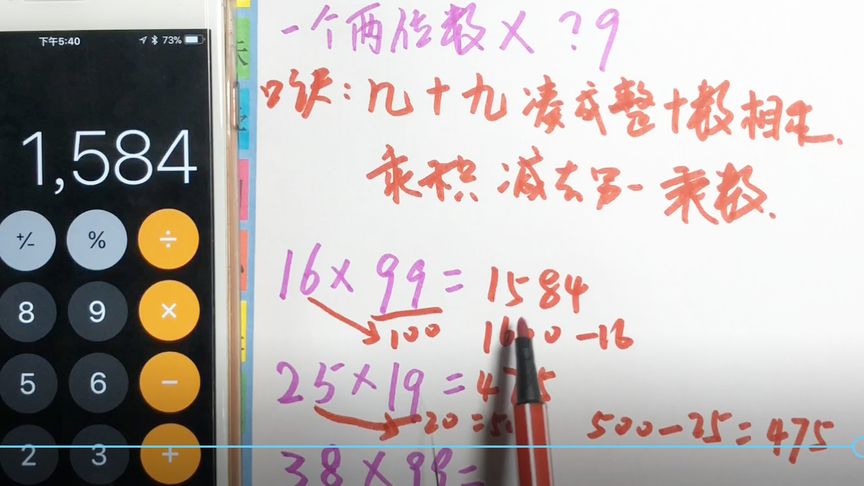 下午5:40 73%
1,584
+/- % ÷
8 9 ×
5 6 −
2 3 +
一个两位数 × ?9
口诀：几十九凑成整十数相乘.
乘积减去另一乘数.
16×99=1584
100 1600-16
25×19=475
20=50 500-25=475
38×99=